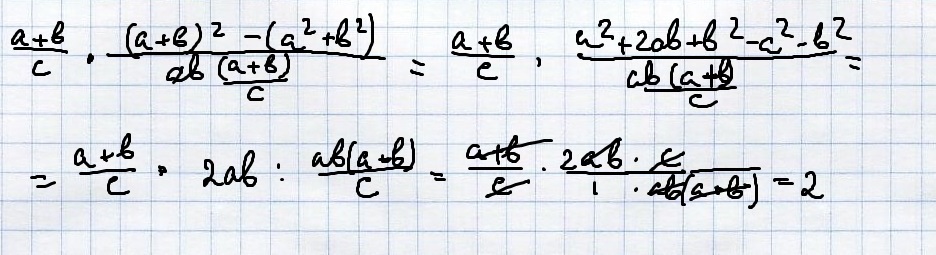 \frac{a+b}{c} \cdot \frac{(a+b)^2 - (a^2+b^2)}{\frac{ab(a+b)}{c}} = \frac{a+b}{c} \cdot \frac{a^2+2ab+b^2-a^2-b^2}{\frac{ab(a+b)}{c}} =
= \frac{a+b}{c} \cdot 2ab : \frac{ab(a+b)}{c} = \frac{a+b}{c} \cdot \frac{2ab \cdot c}{1 \cdot ab(a+b)} = 2